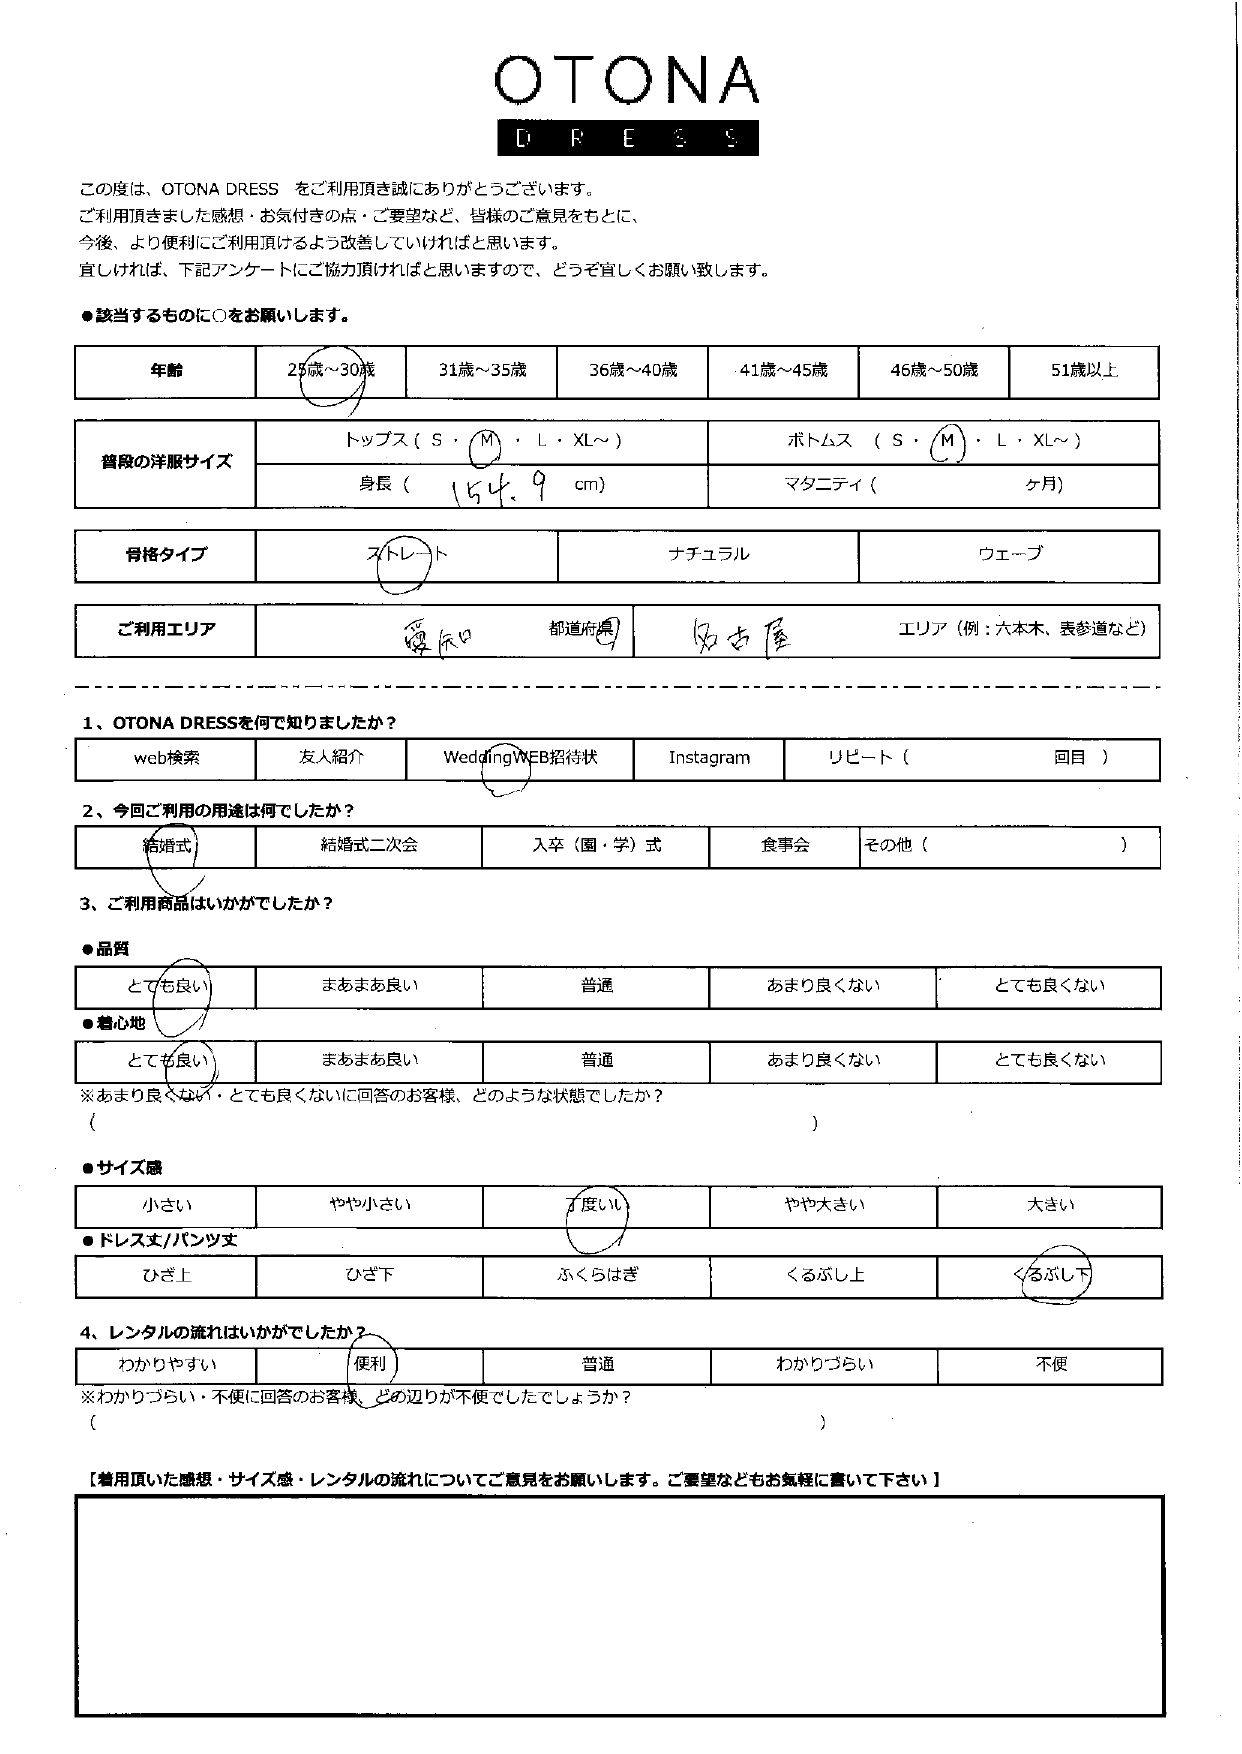 OTONA
DRESS
この度は、OTONA DRESS をご利用頂き誠にありがとうございます。
ご利用頂きました感想・お気付きの点・ご要望など、皆様のご意見をもとに、
今後、より便利にご利用頂けるよう改善していければと思います。
宜しければ、下記アンケートにご協力頂ければと思いますので、どうぞ宜しくお願い致します。
●該当するものに○をお願いします。
年齢 25歳～30歳 31歳～35歳 36歳～40歳 41歳～45歳 46歳～50歳 51歳以上
普段の洋服サイズ トップス ( S ・ M ・ L ・ XL～ ) ボトムス ( S ・ M ・ L ・ XL～ )
身長 ( 154.9 cm) マタニティ ( ヶ月)
骨格タイプ ストレート ナチュラル ウェーブ
ご利用エリア 愛知 都道府県 名古屋 エリア（例：六本木、表参道など）
1、OTONA DRESSを何で知りましたか？
web検索 友人紹介 WeddingWEB招待状 Instagram リピート ( 回目 )
2、今回ご利用の用途は何でしたか？
結婚式 結婚式二次会 入卒（園・学）式 食事会 その他 ( )
3、ご利用商品はいかがでしたか？
●品質
とても良い まあまあ良い 普通 あまり良くない とても良くない
●着心地
とても良い まあまあ良い 普通 あまり良くない とても良くない
※あまり良くない・とても良くないに回答のお客様、どのような状態でしたか？
( )
●サイズ感
小さい やや小さい 丁度いい やや大きい 大きい
●ドレス丈/パンツ丈
ひざ上 ひざ下 ふくらはぎ くるぶし上 くるぶし下
4、レンタルの流れはいかがでしたか？
わかりやすい 便利 普通 わかりづらい 不便
※わかりづらい・不便に回答のお客様、どの辺りが不便でしたでしょうか？
( )
【着用頂いた感想・サイズ感・レンタルの流れについてご意見をお願いします。ご要望などもお気軽に書いて下さい】